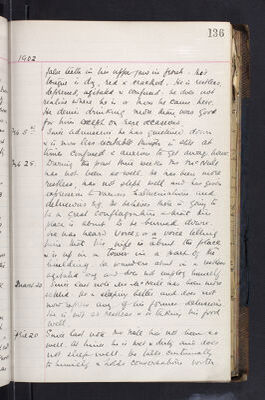 136
1902
false teeth in his upper jaw in front. His
tongue is dry, red & cracked. He is restless,
depressed, agitated & confused. He does not
realise where he is or how he came here.
He denies drinking more than was good
for him except on rare occasions
Since admission he has quietened down
& is now less excitable though is still at
times confused & anxious to get away home
During the past three weeks Mr McNeil
has not been so well. He has been more
restless has not slept well and has given
expression to various hallucinations and
delusions e.g. He believes there is going to
be a great conflagration & that his
place is about to be burned down
He has heard voices or a voice telling
him that his wife is about the place
& is up in a tower in a part of the
building. He wanders about in a restless
agitated way and does not employ himself
March 20 Since last note Mr McNeil has been more
settled. He is sleeping better and does not
now express any of his former delusions
He is not so restless & is taking his food
well
April 20 Since last note Mr McNeil has not been so
well. At times he is wet & dirty and does
not sleep well. He talks continually
to himself & holds conversations with